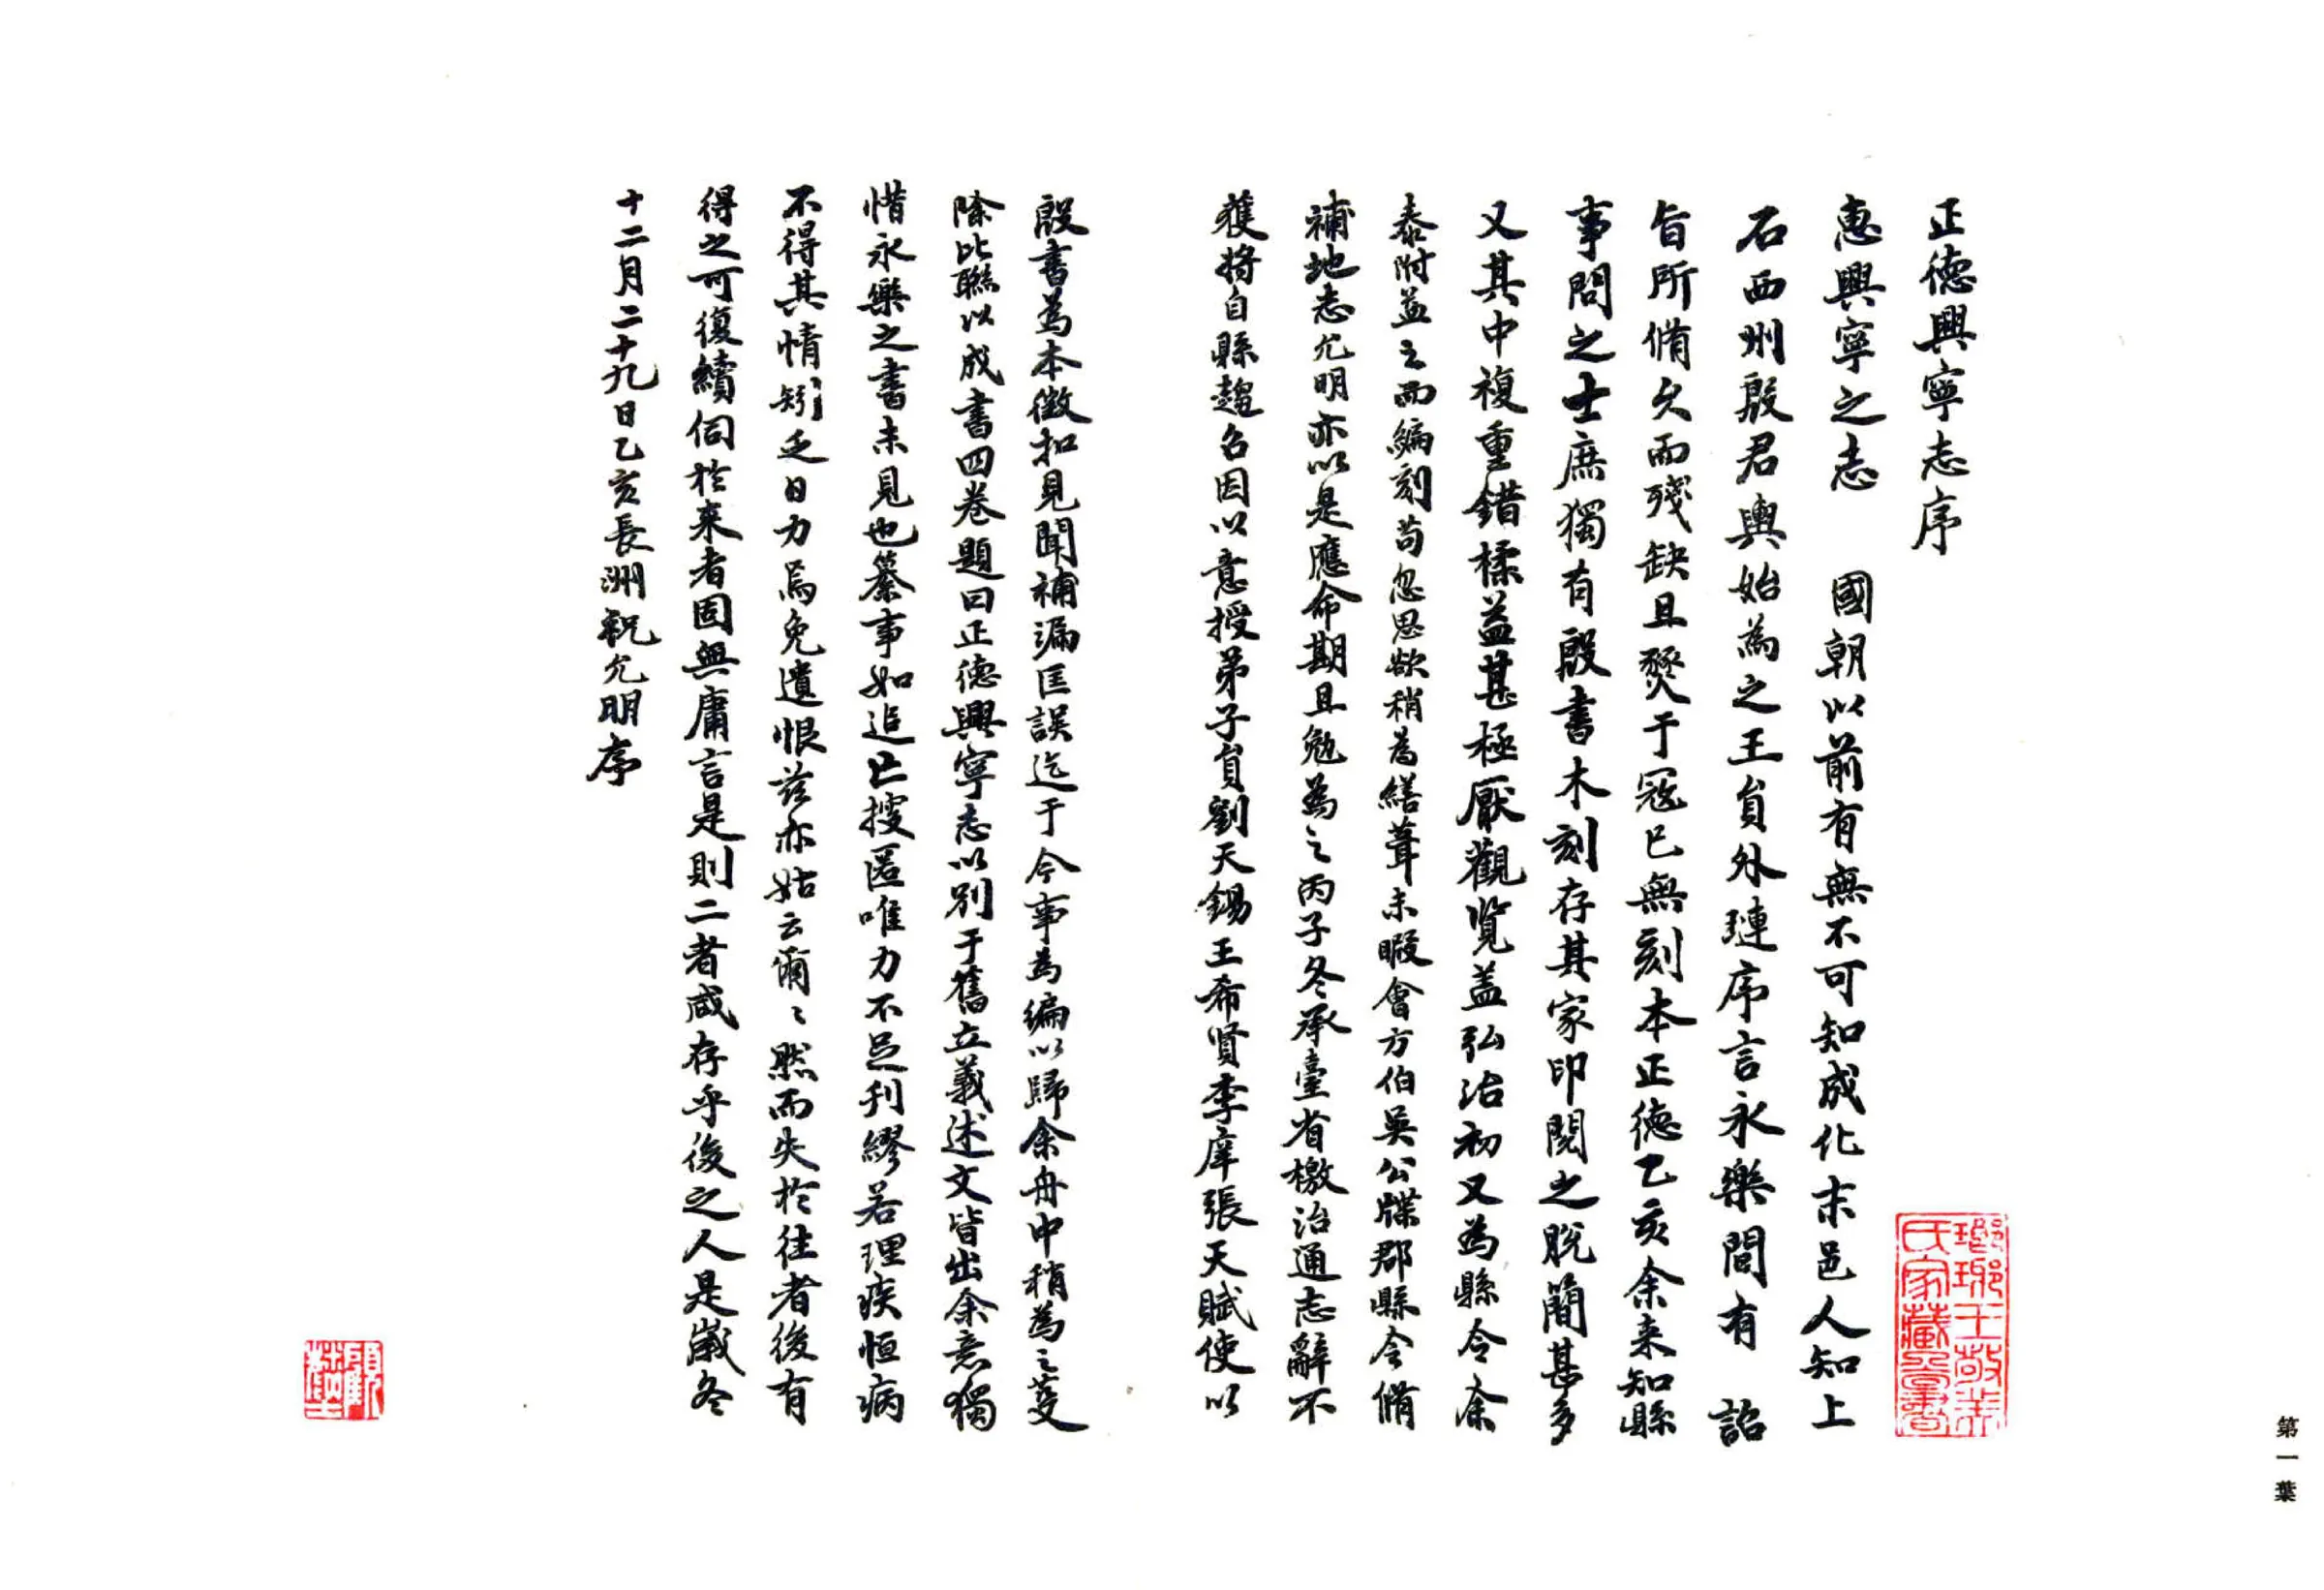 正德興寧志序
惠興寧之志　國朝以前有無不可知成化末邑人知上
石西州殷君輿始為之王貟外璉序言永樂間有　詔
旨所脩久而殘缺且燹于寇已無刻本正德乙亥余来知縣
事問之士庶獨有殷書木刻存其家印閱之脫簡甚多
又其中複重錯糅益甚極厭觀覧盖弘治初又為縣令余
泰附益之而編刻苟忽思欲稍為繕葺未暇會方伯吳公牒郡縣令脩
補地志允明亦以是應命期且勉為之丙子冬承臺省檄治通志辭不
獲將自縣趨召因以意授弟子貟劉天錫王希賢李庠張天賦使以
殷書為本徵扣見聞補漏匡誤迄于今事為編以歸余舟中稍為之芟
除比聯以成書四卷題曰正德興寧志以別于舊立義述文皆出余意獨
惜永樂之書未見也纂事如追亡搜匿唯力不足刋繆若理疾恒病
不得其情矧乏日力焉免遺恨兹亦姑云爾〻然而失於往者後有
得之可復續伺於来者固無庸言是則二者咸存乎後之人是歲冬
十二月二十九日乙亥長洲祝允明序
琅琊王敬美
氏家藏圖書
第一葉